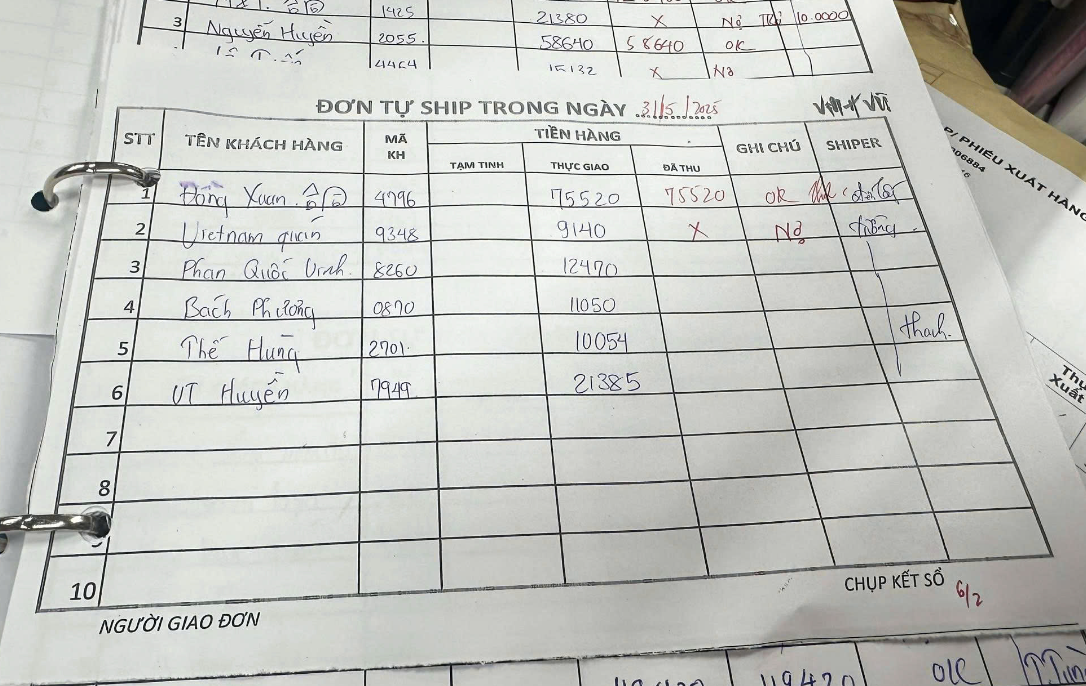 1425 21380 X Nợ Trả 10.0000
3 Nguyễn Huyền 2055. 58640 58640 OK
4464 15132 X Nợ
ĐƠN TỰ SHIP TRONG NGÀY 31/5/2025
STT TÊN KHÁCH HÀNG MÃ KH TIỀN HÀNG GHI CHÚ SHIPER
TẠM TINH THỰC GIAO ĐÃ THU
1 Đồng Xuân 4796 75520 75520 OK
2 Vietnam quán 9348 9140 X Nợ
3 Phan Quốc Vinh. 8260 12470
4 Bách Phương 0870 11050
5 Thế Hùng 2701. 10054 thach.
6 UT Huyền 7949 21385
7
8
10
NGƯỜI GIAO ĐƠN
CHỤP KẾT SỔ 6/2
P/ PHIẾU XUẤT HÀNG
06884
Thự
Xuất
119420 OK